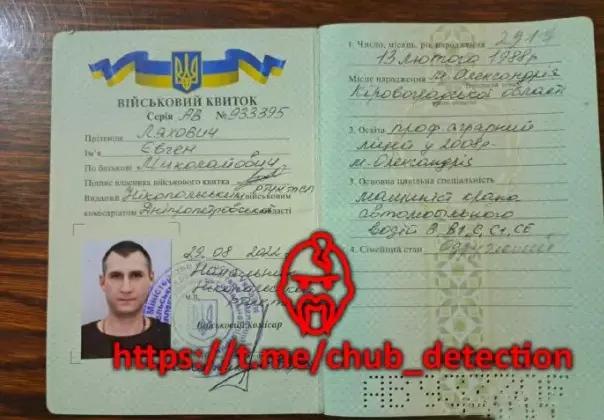 ВІЙСЬКОВИЙ КВИТОК
Серія АВ № 933395
Прізвище Ляхович
Ім'я Євген
По батькові Миколайович
Підпис власника військового квитка
Виданий Нікопольським військовим
комісаріатом Дніпропетровської області
29.08 2022
Начальник
М.П.
Військовий комісар
https://t.me/chub_detection
1. Число, місяць, рік народження
13 лютого 1988р
Місце народження м. Олександрія
Кіровоградської області
3. Освіта проф. аграрний
ліцей у 2008р
м. Олександрія
3. Основна цивільна спеціальність
машиніст крана
автомобільного
водій В, В1, С, С1, СЕ
4. Сімейний стан одружений